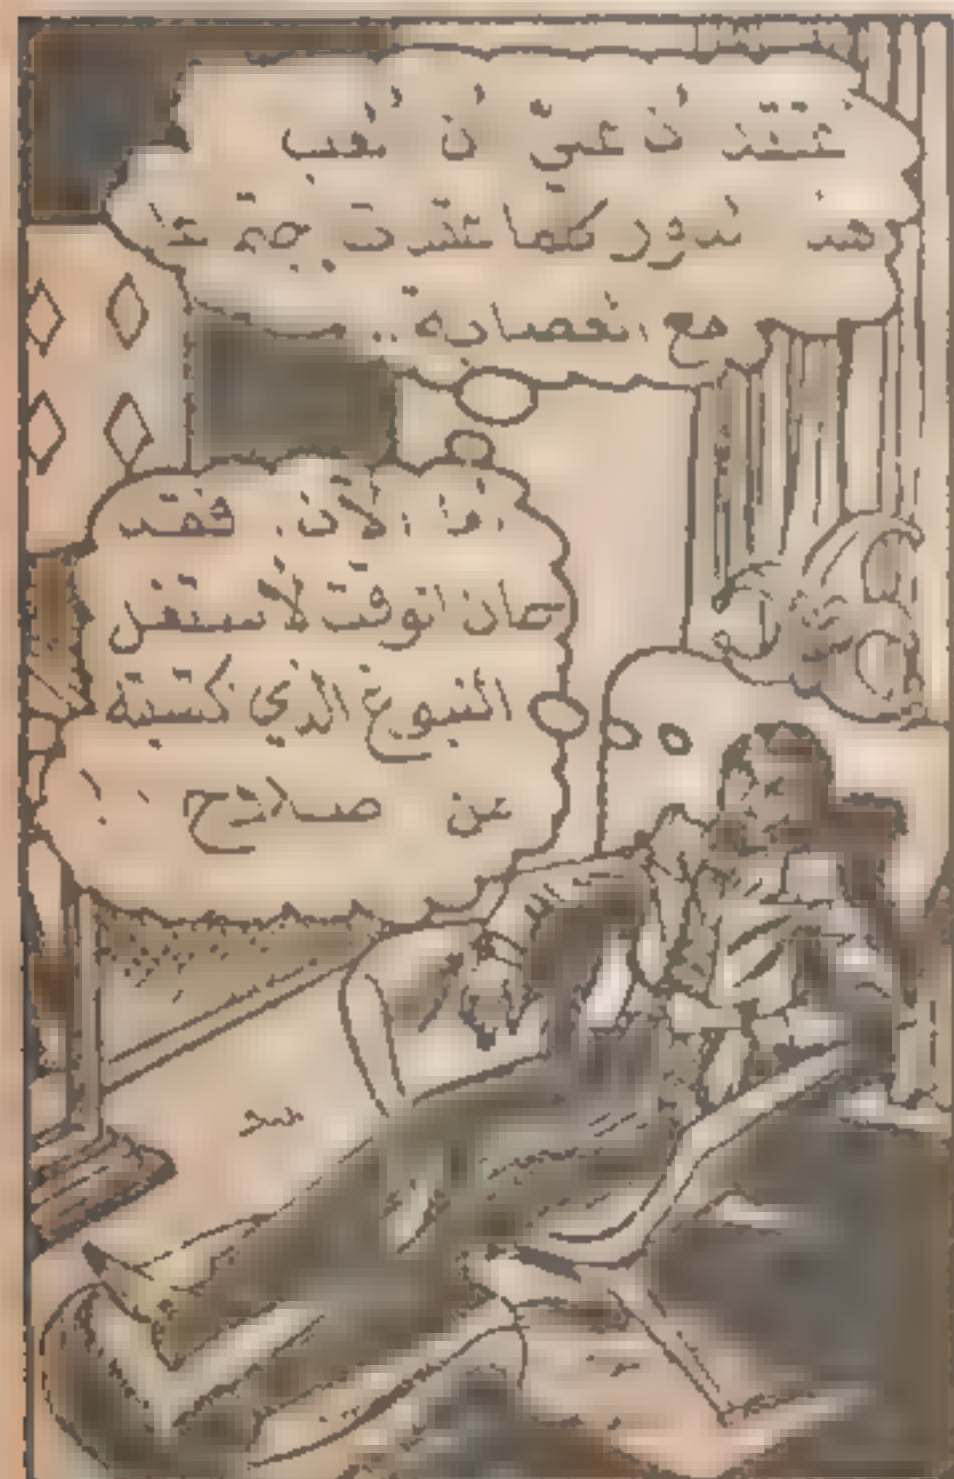 أعتقد أن عليّ أن ألعب
هذا الدور كلما عقدت
مع العصابة ..
أما الآن ، فقد
حان الوقت لأستغل
النبوغ الذي كسبته
من صلاح